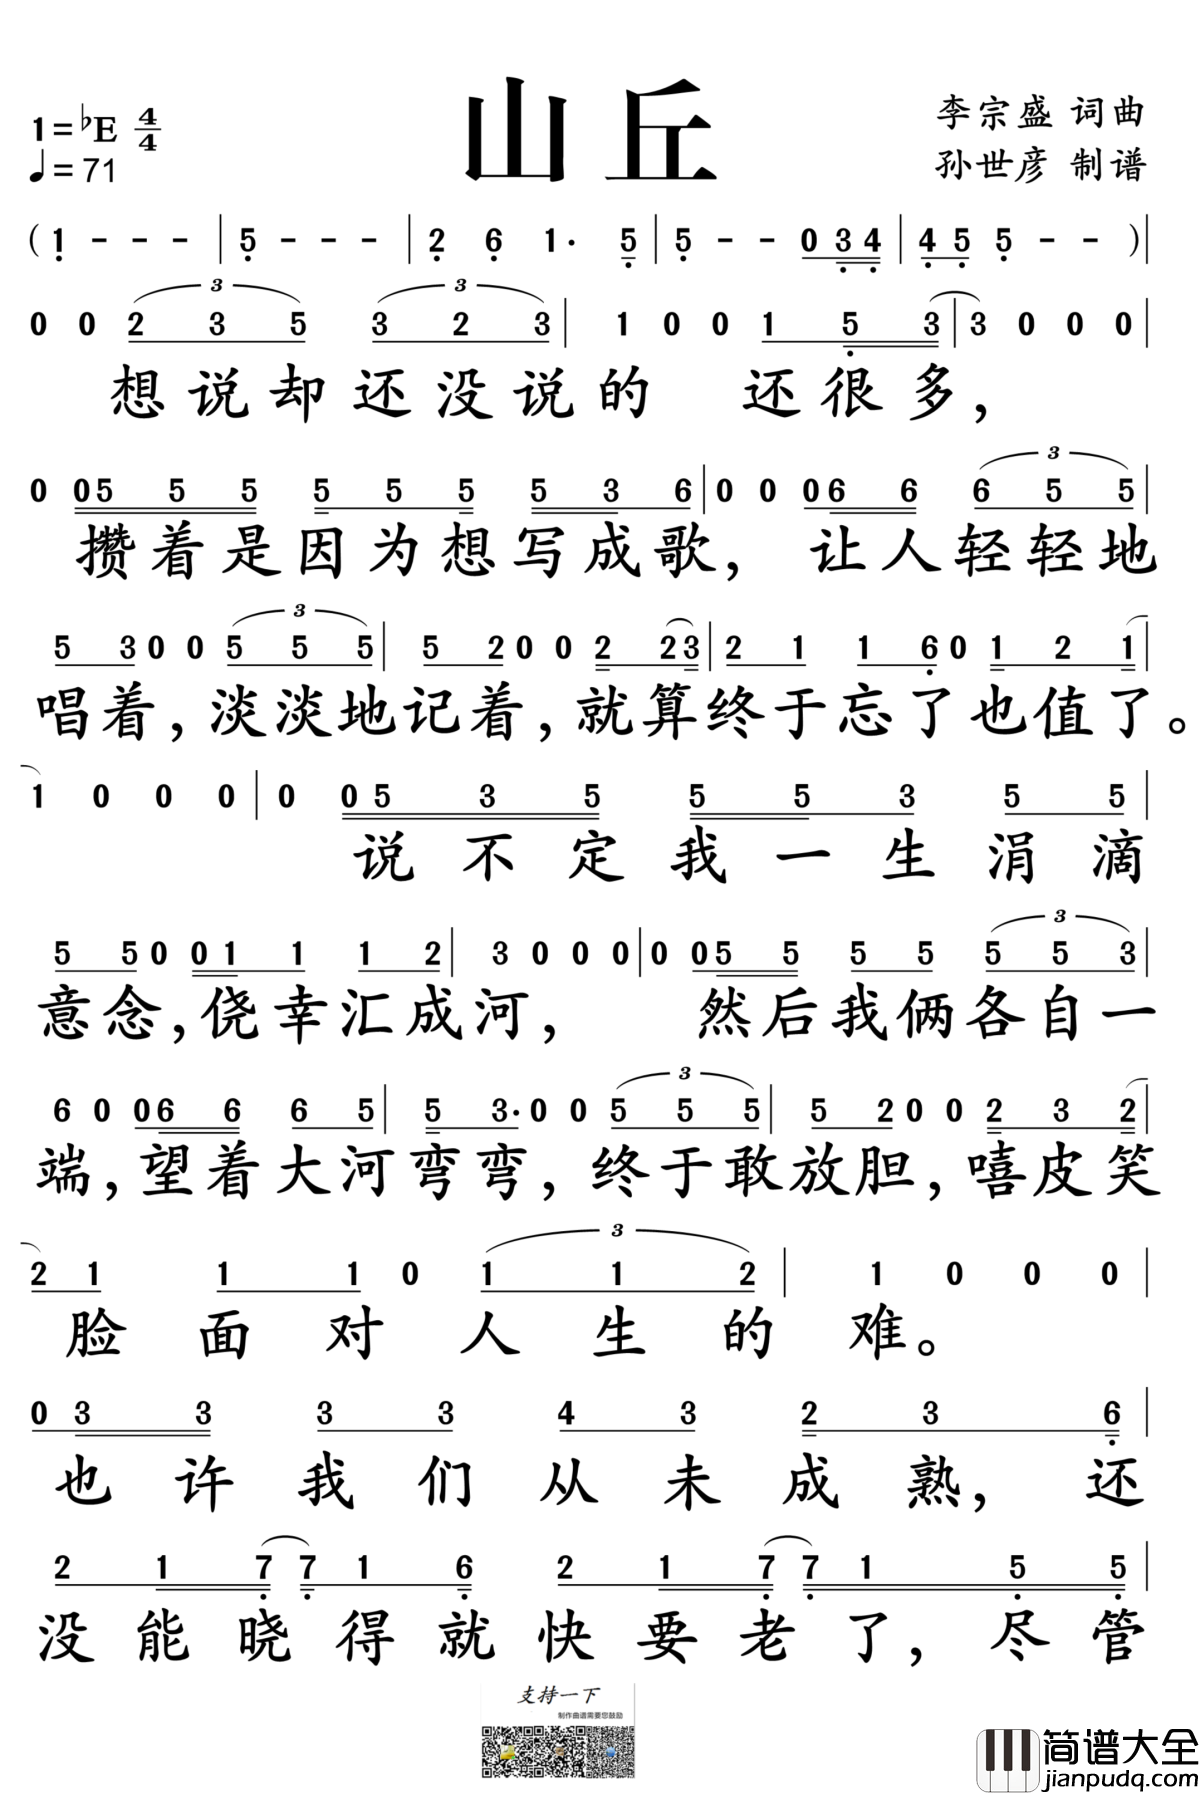 山丘
1=♭E 4/4
♩=71
李宗盛 词曲
孙世彦 制谱
( 1 - - - | 5 - - - | 2 6 1· 5 | 5 - - 0 3 4 | 4 5 5 - - ) |
0 0 2 3 5 3 2 3 | 1 0 0 1 5 3 | 3 0 0 0
想说却还没说的 还很多，
0 0 5 5 5 5 5 5 5 3 6 | 0 0 0 6 6 6 5 5 |
攒着是因为想写成歌，让人轻轻地
5 3 0 0 5 5 5 | 5 2 0 0 2 2 3 | 2 1 1 6 0 1 2 1 |
唱着，淡淡地记着，就算终于忘了也值了。
1 0 0 0 | 0 0 5 3 5 5 5 3 5 5 |
说不定我一生涓滴
5 5 0 0 1 1 1 2 | 3 0 0 0 | 0 0 5 5 5 5 5 5 3 |
意念，侥幸汇成河，然后我俩各自一
6 0 0 6 6 6 5 | 5 3· 0 0 5 5 5 | 5 2 0 0 2 3 2 |
端，望着大河弯弯，终于敢放胆，嘻皮笑
2 1 1 1 0 1 1 2 | 1 0 0 0 |
脸面对人生的难。
0 3 3 3 3 4 3 2 3 6 |
也许我们从未成熟，还
2 1 7 7 1 6 2 1 7 7 1 5 5 |
没能晓得就快要老了，尽管
支持一下
制作曲谱需要您鼓励
简谱大全
jianpudq.com